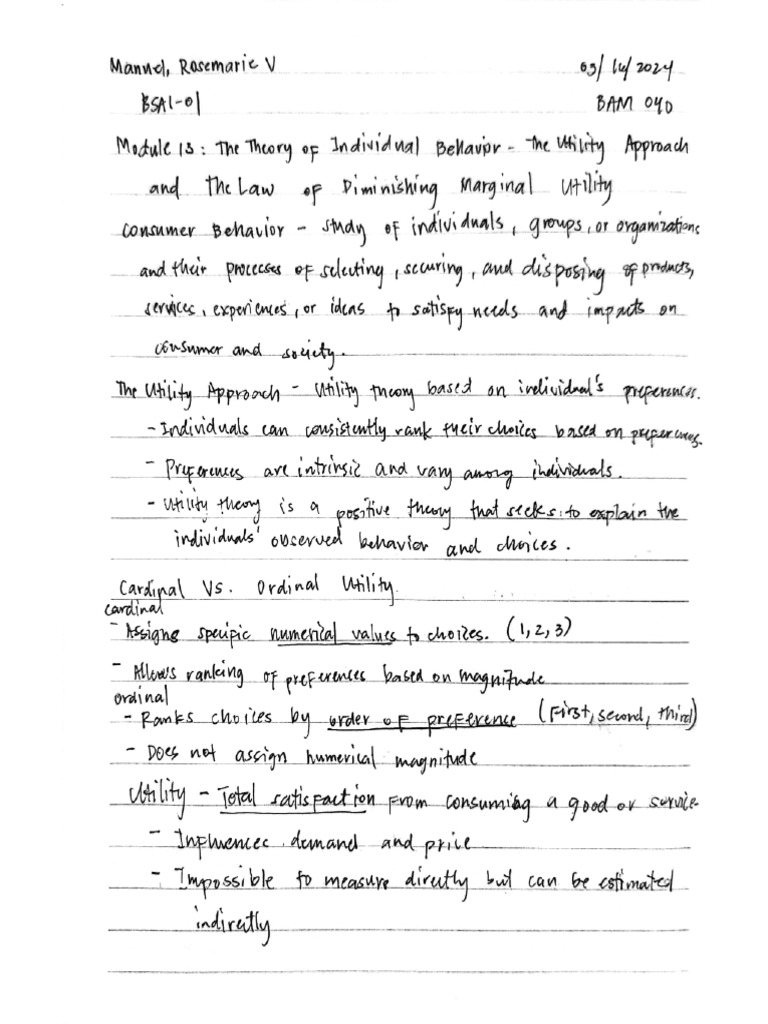 Manuel, Rosemarie V 03/16/2024
BSA1-01 BAM 040
Module 13: The Theory of Individual Behavior - The Utility Approach
and The Law of Diminishing Marginal Utility
Consumer Behavior - study of individuals, groups, or organizations
and their processes of selecting, securing, and disposing of products,
services, experiences, or ideas to satisfy needs and impacts on
consumer and society.
The Utility Approach - Utility theory based on individual's preferences.
- Individuals can consistently rank their choices based on preferences.
- Preferences are intrinsic and vary among individuals.
- Utility theory is a positive theory that seeks to explain the
individuals' observed behavior and choices.
Cardinal Vs. Ordinal Utility
cardinal
- Assigns specific numerical values to choices. (1,2,3)
- Allows ranking of preferences based on magnitude
ordinal
- Ranks choices by order of preference (First, second, third)
- Does not assign numerical magnitude
Utility - Total satisfaction from consuming a good or service
- Influences demand and price
- Impossible to measure directly but can be estimated
indirectly